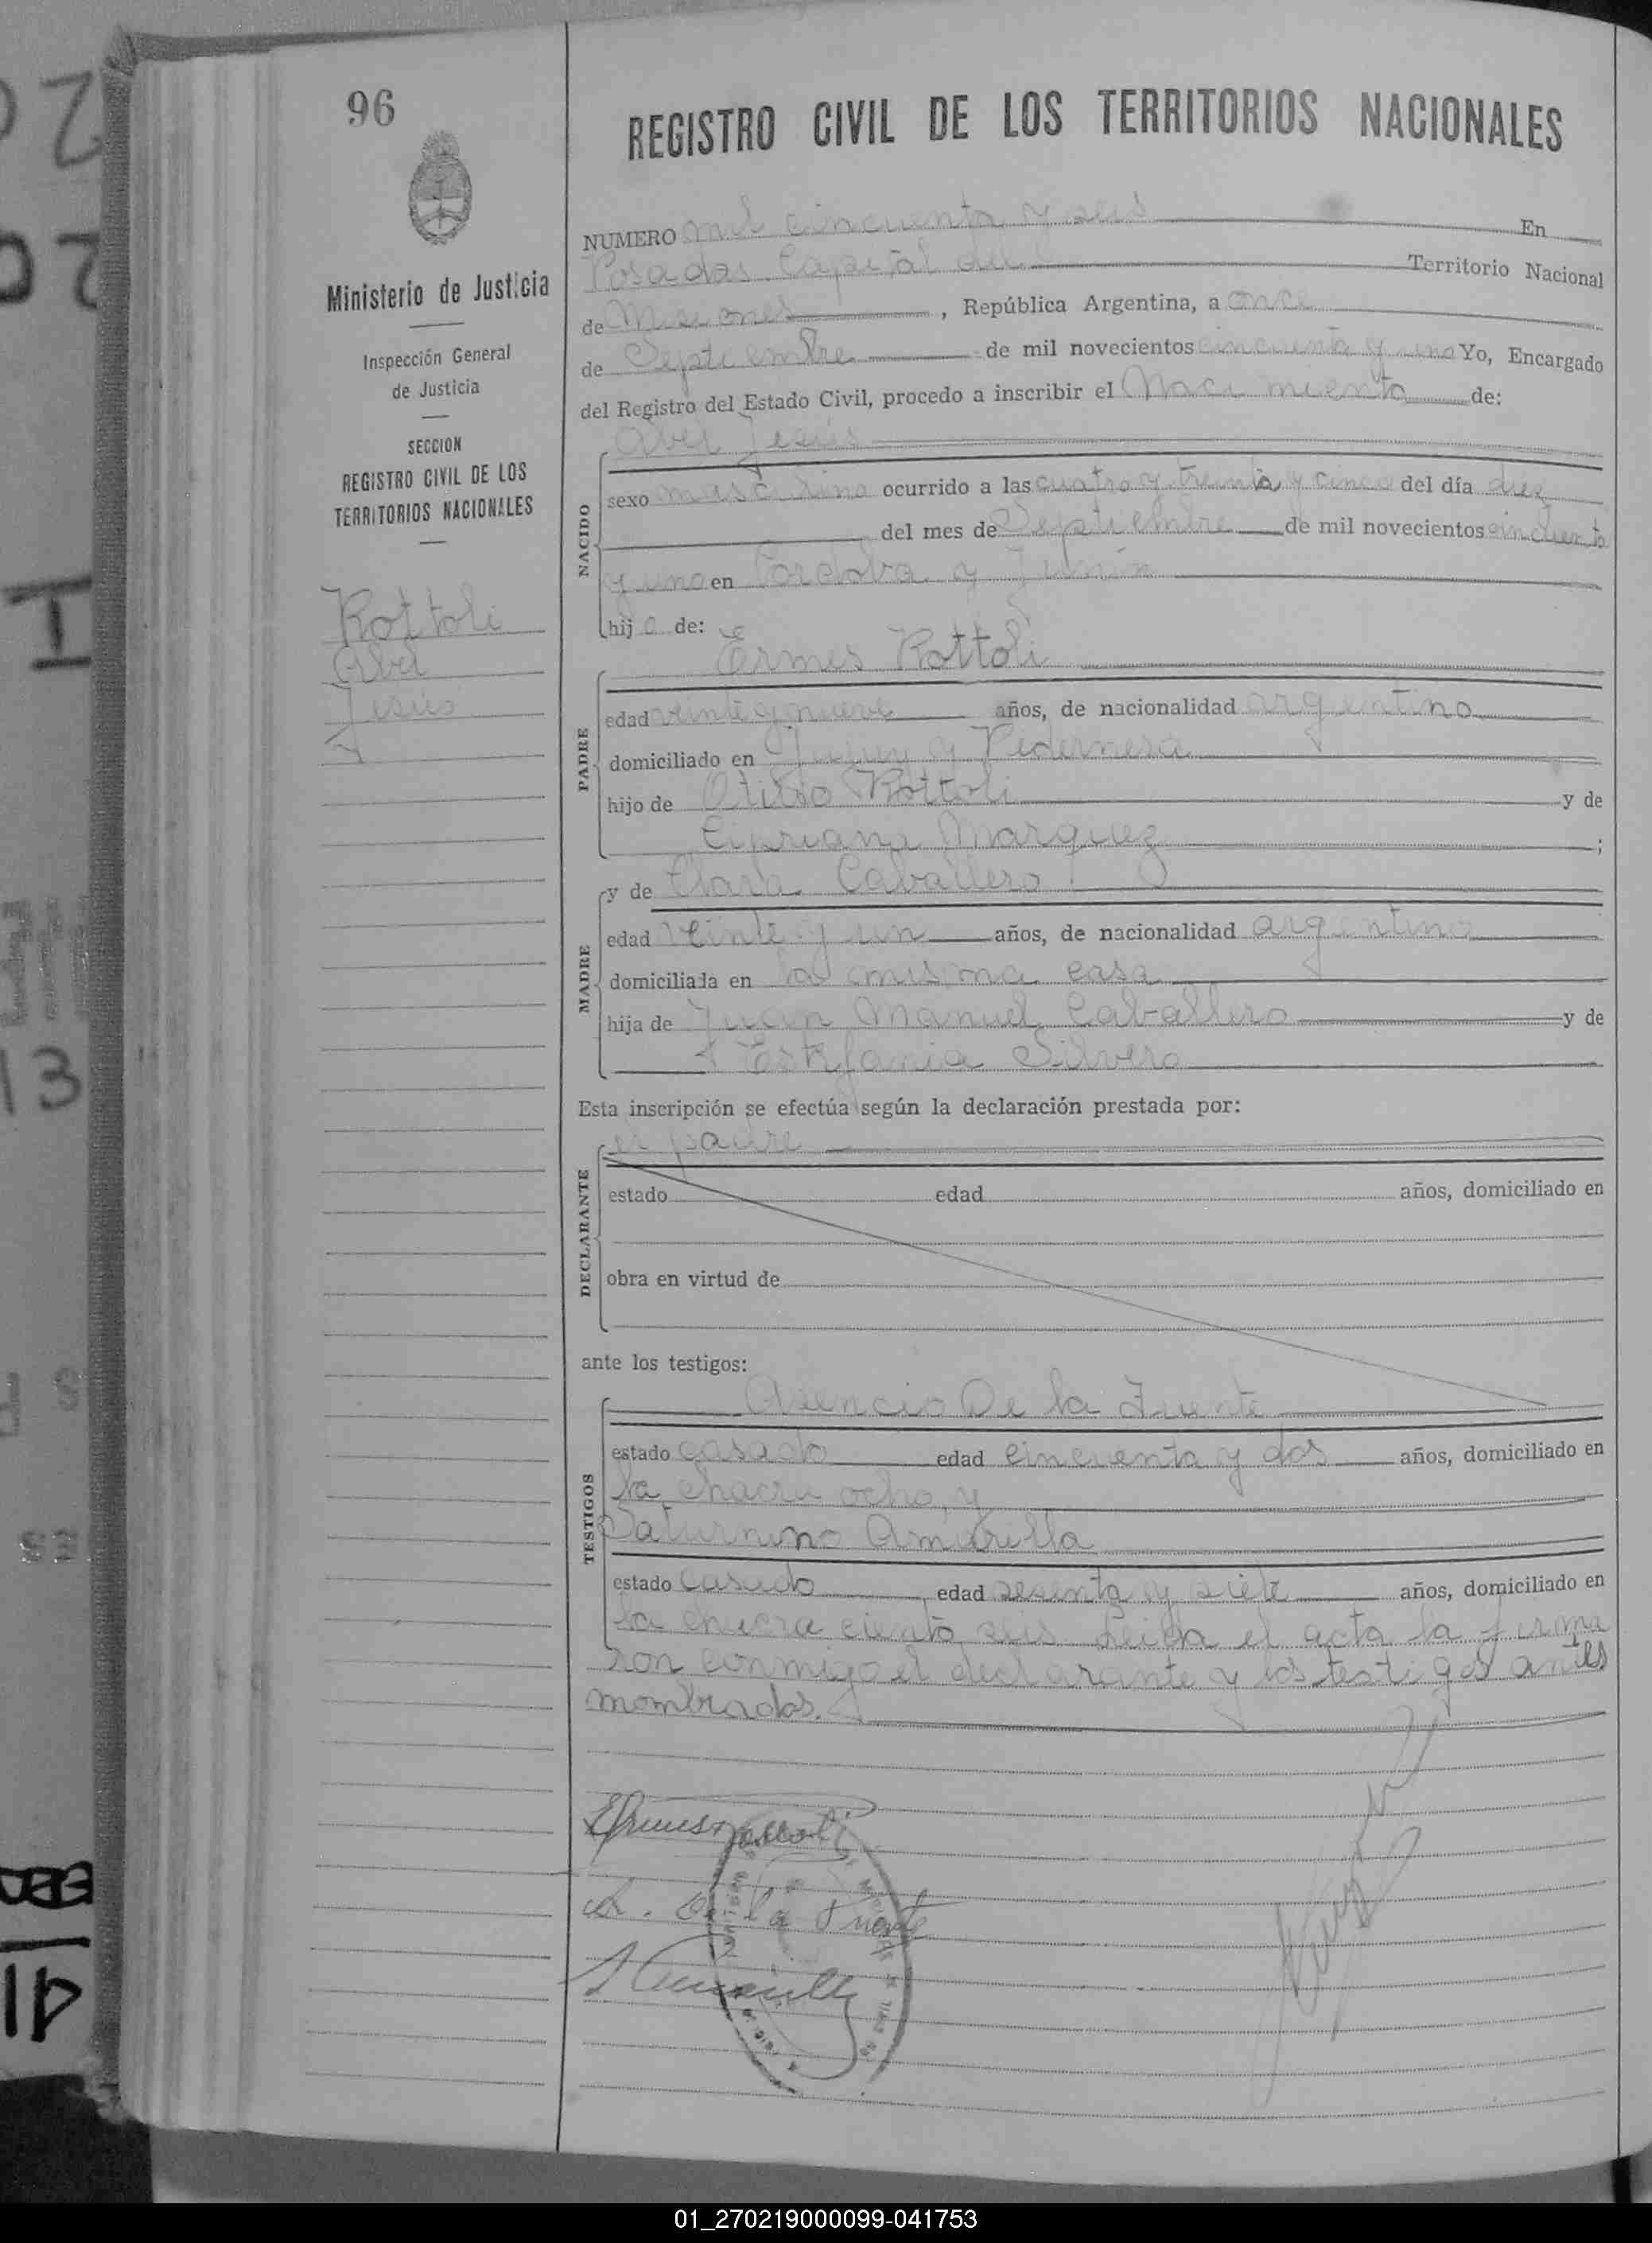 96
REGISTRO CIVIL DE LOS TERRITORIOS NACIONALES
Ministerio de Justicia
Inspección General
de Justicia
SECCION
REGISTRO CIVIL DE LOS
TERRITORIOS NACIONALES
Rottoli
Abel
Jesús
NUMERO mil cincuenta y seis En
Posadas Capital del Territorio Nacional
de Misiones, República Argentina, a once
de Septiembre de mil novecientos cincuenta y uno Yo, Encargado
del Registro del Estado Civil, procedo a inscribir el Nacimiento de:
Abel Jesús
NACIDO
sexo masculino ocurrido a las cuatro y treinta y cinco del día diez
del mes de Septiembre de mil novecientos cincuenta
y uno en Córdoba y Junín
hijo de:
Ermes Rottoli
PADRE
edad veinte y nueve años, de nacionalidad argentino
domiciliado en Jujuy y Pedernera
hijo de Otilio Rottoli y de
Cipriana Marquez;
y de Clara Caballero
MADRE
edad veinte y un años, de nacionalidad argentina
domiciliada en la misma casa
hija de Juan Manuel Caballero y de
Estefania Silvero
Esta inscripción se efectúa según la declaración prestada por:
el padre
DECLARANTE
estado edad años, domiciliado en
obra en virtud de
ante los testigos:
Asencio De la Fuente
TESTIGOS
estado casado edad cincuenta y dos años, domiciliado en
la chacra ocho, y
Saturnino Amarilla
estado casado edad sesenta y siete años, domiciliado en
la chacra ciento seis Leida el acta la firma
ron conmigo el declarante y los testigos antes
nombrados.
Ermes Rottoli
A. De la Fuente
S Amarilla
01_270219000099-041753